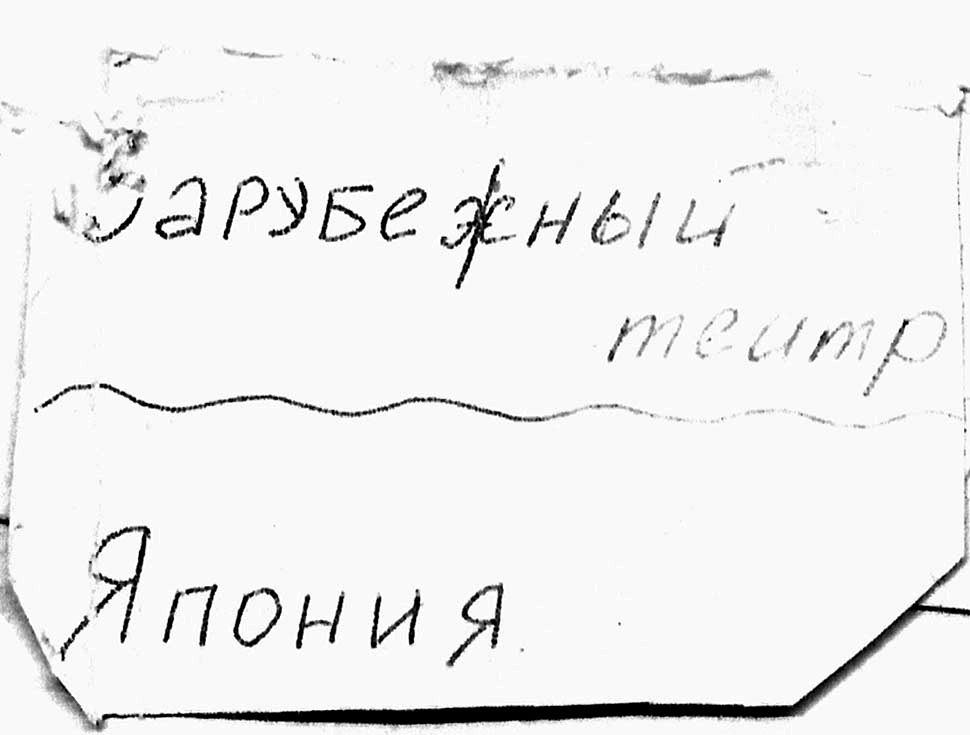 Зарубежный
театр
Япония